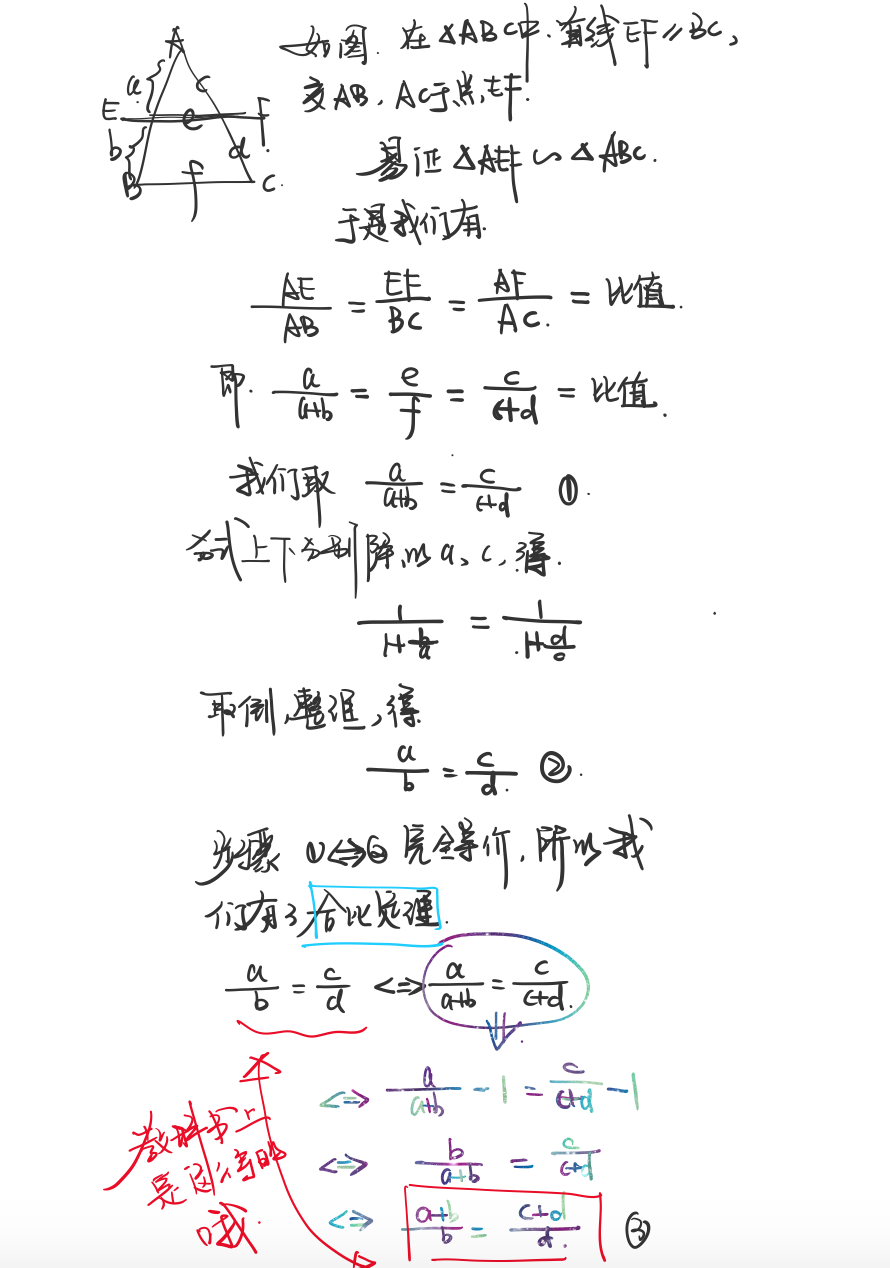 A
a
c
E
e
F
b
d
B
f
C
如图. 在△ABC中. 有线EF∥BC,
交AB, AC于点E,F.
易证△AEF∽△ABC.
于是我们有.
AE/AB = EF/BC = AF/AC = 比值.
即. a/(a+b) = e/f = c/(c+d) = 比值.
我们取 a/(a+b) = c/(c+d) ①.
分式上下分别除以a、c, 得.
1/(1+b/a) = 1/(1+d/c)
取倒,整理,得
a/b = c/d ②.
步骤①⇔②完全等价, 所以我
们有了合比定理.
a/b = c/d <=> a/(a+b) = c/(c+d)
<=> a/(a+b) - 1 = c/(c+d) - 1
<=> b/(a+b) = c/(c+d)
<=> (a+b)/b = (c+d)/d ③
教科书上
是这么写的
哦.